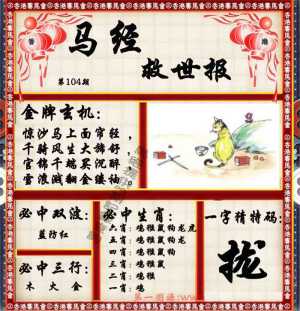 香 港
马经
救世报
第104期
金牌玄机:
惊沙马上面
千骑风生大旆舒,
官锦千端买沉醉,
雪浪溅翻金缕袖。
必中双波:
蓝防红
必中三行:
木 火 金
必中生肖:
六肖:鸡猴鼠狗龙虎
五肖:鸡猴鼠狗龙
四肖:鸡猴鼠狗
三肖:鸡猴鼠
二肖:鸡猴
一肖:鸡
一字猜特码:
拢
香港賽馬會